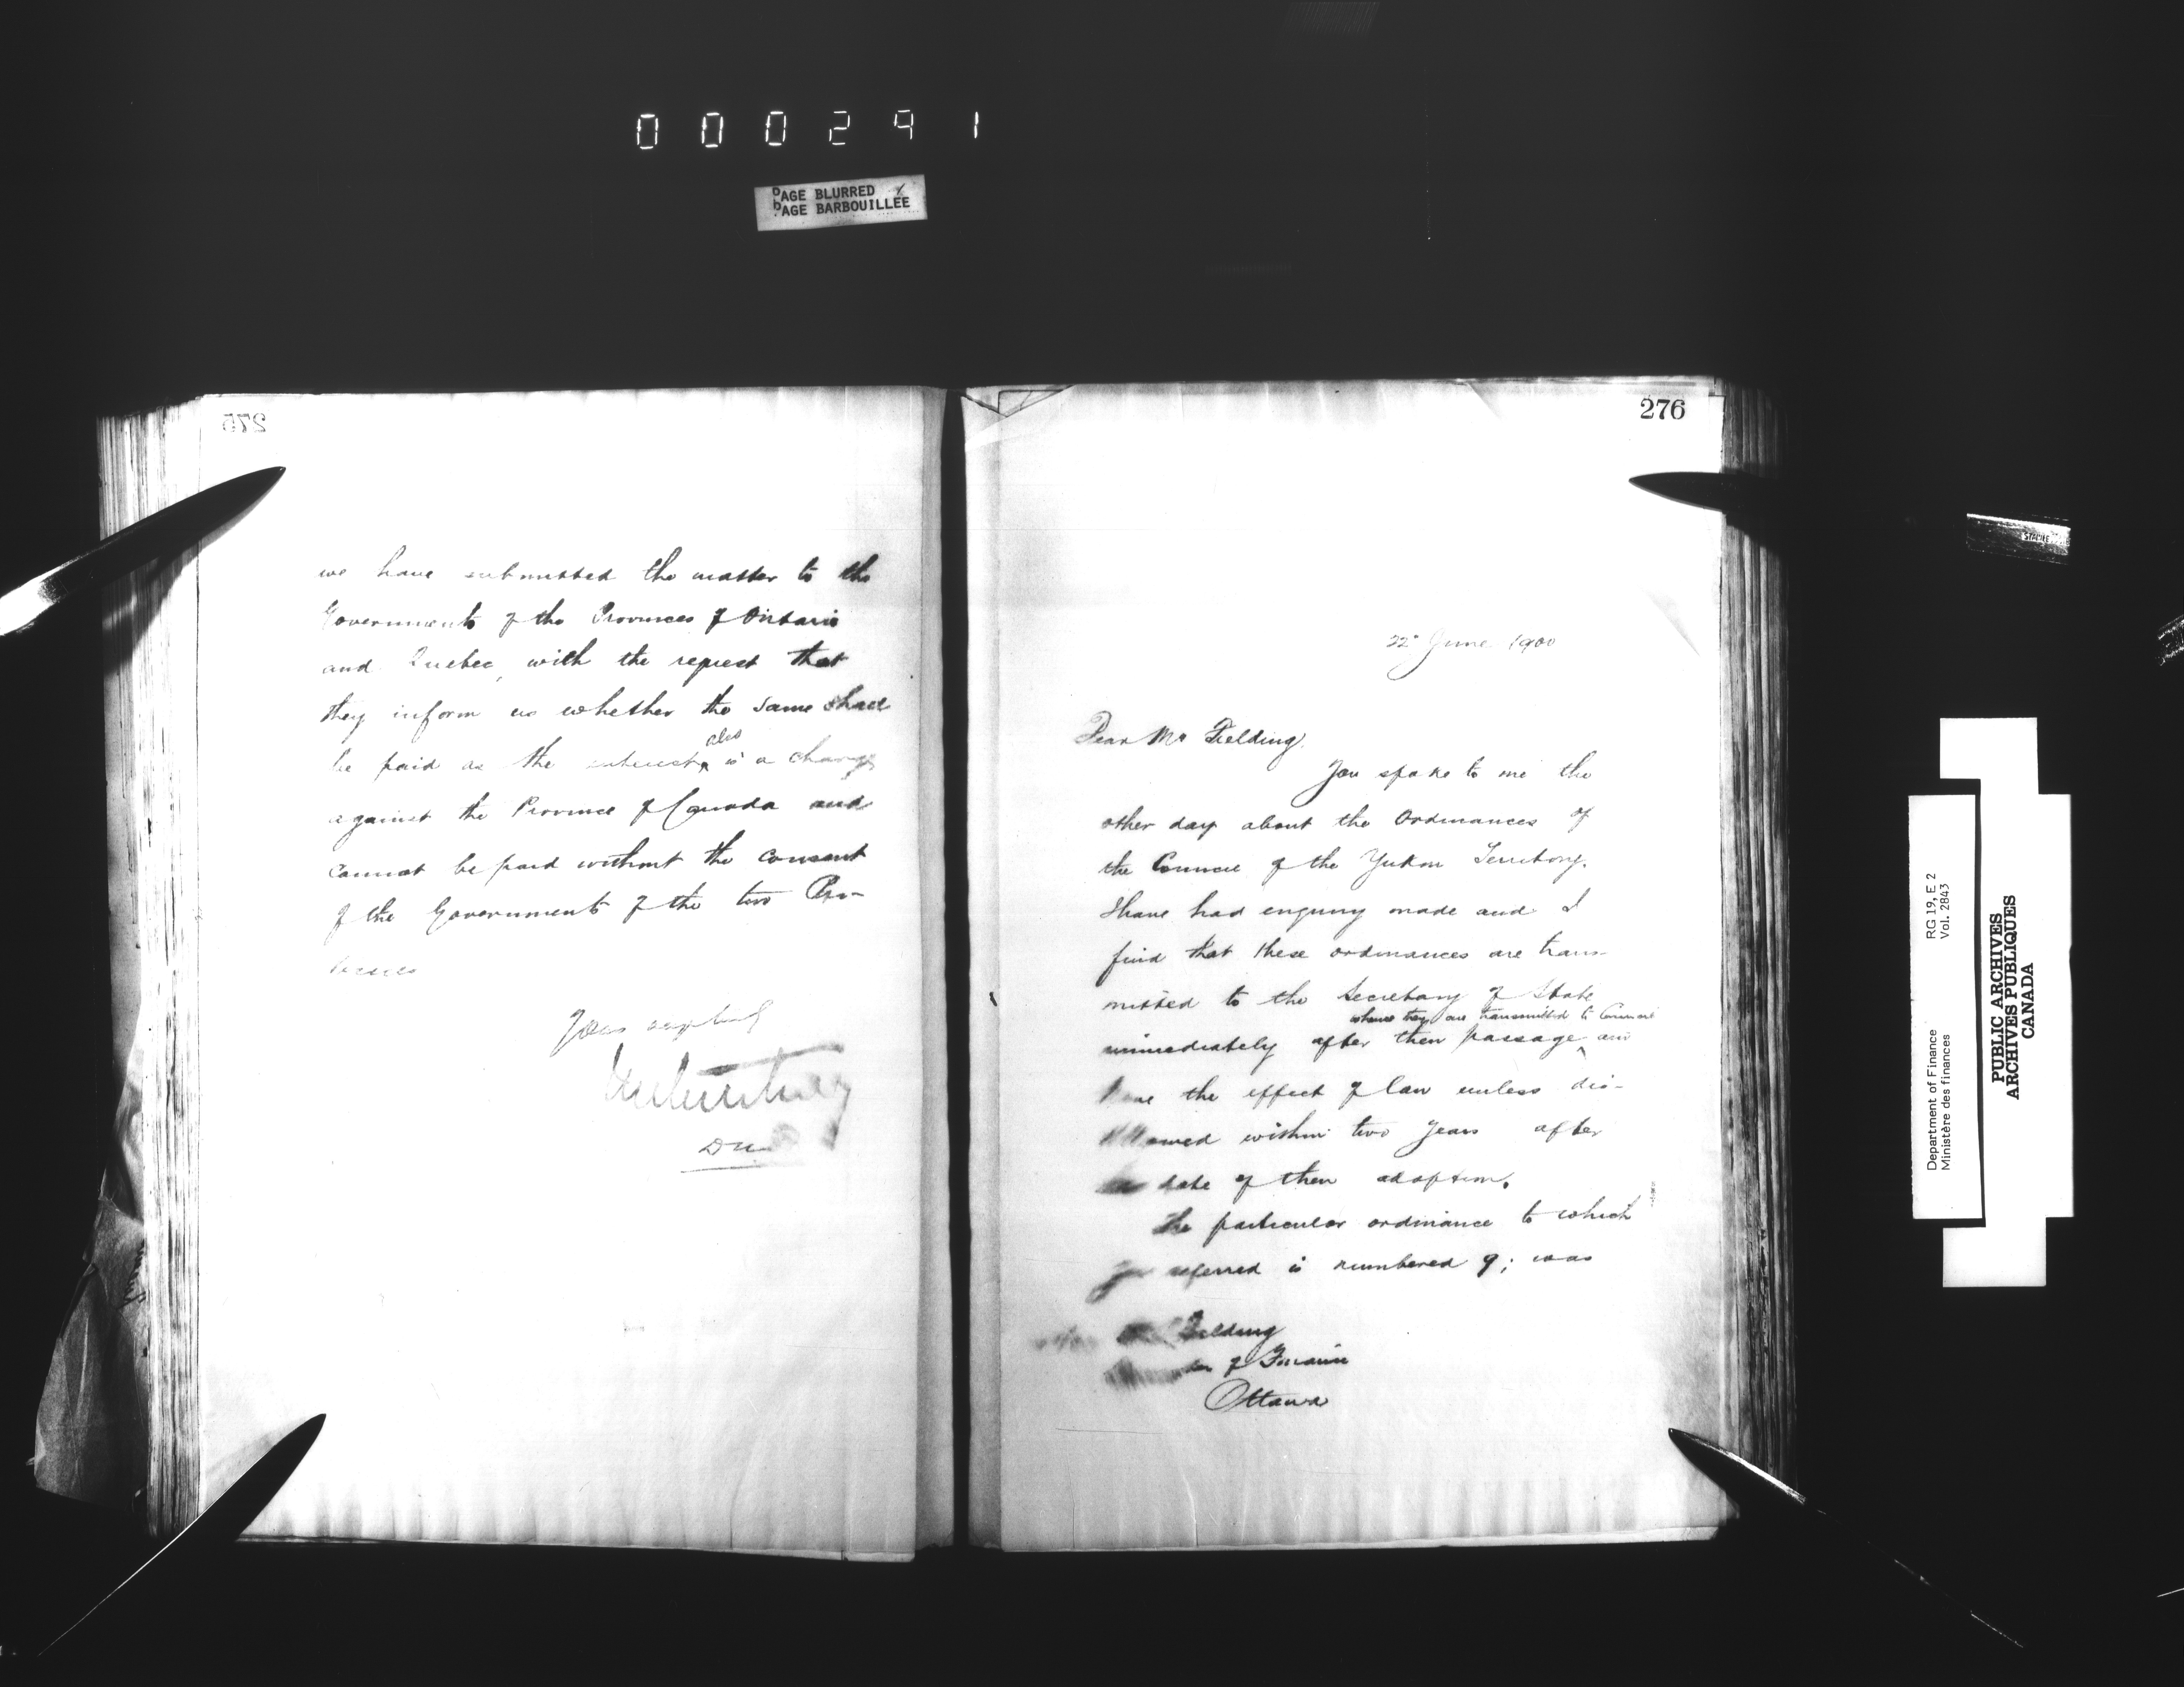 000291
PAGE BLURRED
PAGE BARBOUILLÉE
275
we have submitted the matter to the
Governments of the Provinces of Ontario
and Quebec, with the request that
they inform us whether the same shall
also
be paid as the interest is a charge
against the Province of Canada and
cannot be paid without the consent
of the Governments of the two Pro-
vinces
Yours
276
22 June 1900
Dear Mr Fielding,
You spoke to me the
other day about the Ordinances of
the Council of the Yukon Territory.
I have had enquiry made and I
find that these ordinances are trans-
mitted to the Secretary of State
where they are transmitted to Council
immediately after their passage and
have the effect of law unless dis-
allowed within two years after
the date of their adoption.
The particular ordinance to which
you referred is numbered 9; was
Fielding
of Finance
Ottawa
STAINLESS
Department of Finance RG 19, E 2
Ministère des finances Vol. 2843
PUBLIC ARCHIVES
ARCHIVES PUBLIQUES
CANADA